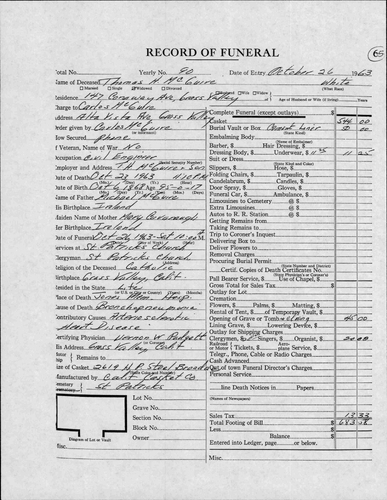 RECORD OF FUNERAL
65
Total No. Yearly No. 90 Date of Entry October 26 1963
Name of Deceased Thomas H. McGuire White
Married Single Widowed Divorced (What Race)
Residence 147 Conaway Ave, Grass Valley
Wife Widow of Age of Husband or Wife (if living) Years
Charge to Carlos McGuire
Address Alta Vista Ave, Grass Valley
Order given by Carlos McGuire
How Secured Phone
If Veteran, Name of War No
Occupation Civil Engineer
Employer and Address T. H. McGuire + Son
Date of Death Oct 23 1963 11:10 P.M.
Date of Birth Oct 6, 1868 Age 95-0-17
Name of Father Michael McGuire
His Birthplace Ireland
Maiden Name of Mother Mary Cavanaugh
Her Birthplace Ireland
Date of Funeral Oct 26 1963 - Sat
Services at St Patricks Church
Clergyman St Patricks Church
Religion of the Deceased Catholic
Birthplace Grass Valley, Calif.
Resided in the State Life
Place of Death Jones Mem. Hosp.
Cause of Death Bronchopneumonia
Contributory Causes Arteriosclerotic
Heart Disease
Certifying Physician Vernon W. Padgett
His Address Grass Valley Calif
Remains to
Size of Casket
Manufactured by Casket Co
Cemetery St Patricks
Lot No.
Grave No.
Section No.
Block No.
Owner
Diagram of Lot or Vault
Complete Funeral (except outlays) $
Casket 546 00
Burial Vault or Box
(State Kind)
Embalming Body
(Name of Embalmer)
Barber, $ Hair Dressing, $
Dressing Body, $ Underwear, $ 11 25
Suit or Dress
(State Kind and Color)
Slippers, $ Hose, $
Folding Chairs, $ Tarpaulin, $
Candelabrum, $ Candles, $
Door Spray, $ Gloves, $
Funeral Car, $ Ambulance, $
Limousines to Cemetery @ $
Extra Limousines @ $
Autos to R. R. Station @ $
Getting Remains from
Taking Remains to
Trip to Coroner's Inquest
Delivering Box to
Deliver Flowers to
Removal Charges
Procuring Burial Permit
Certif. Copies of Death Certificates No.
Pall Bearer Service, $ Use of Chapel, $
Gross Total for Sales Tax $
Outlay for Lot
Cremation
Flowers, $ Palms, $ Matting, $
Rental of Tent, $ of Temporary Vault, $
Opening Grave or Tomb 45 00
Lining Grave, $ Lowering Device, $
Outlay for Shipping Charges
Clergymen, $ Singers, $ Organist, $ 20 00
Tickets, $ plane Service, $
Telegr., Phone, Cable or Radio Charges
Cash Advanced
Out of town Funeral Director's Charges
Personal Service
line Death Notices in Papers
(Names of Newspapers)
Sales Tax 13 33
Total Footing of Bill $ 683 58
Less
Balance $
Entered into Ledger, page or below.
Misc.